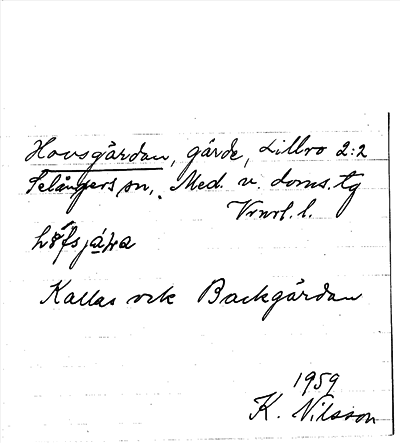 Hovsgårdan, gärde, Lillbro 2:2
Selångers sn, Med. v. doms. tg
Vnrl. l.
Kallas ock Backgårdan
1959
K. Nilsson